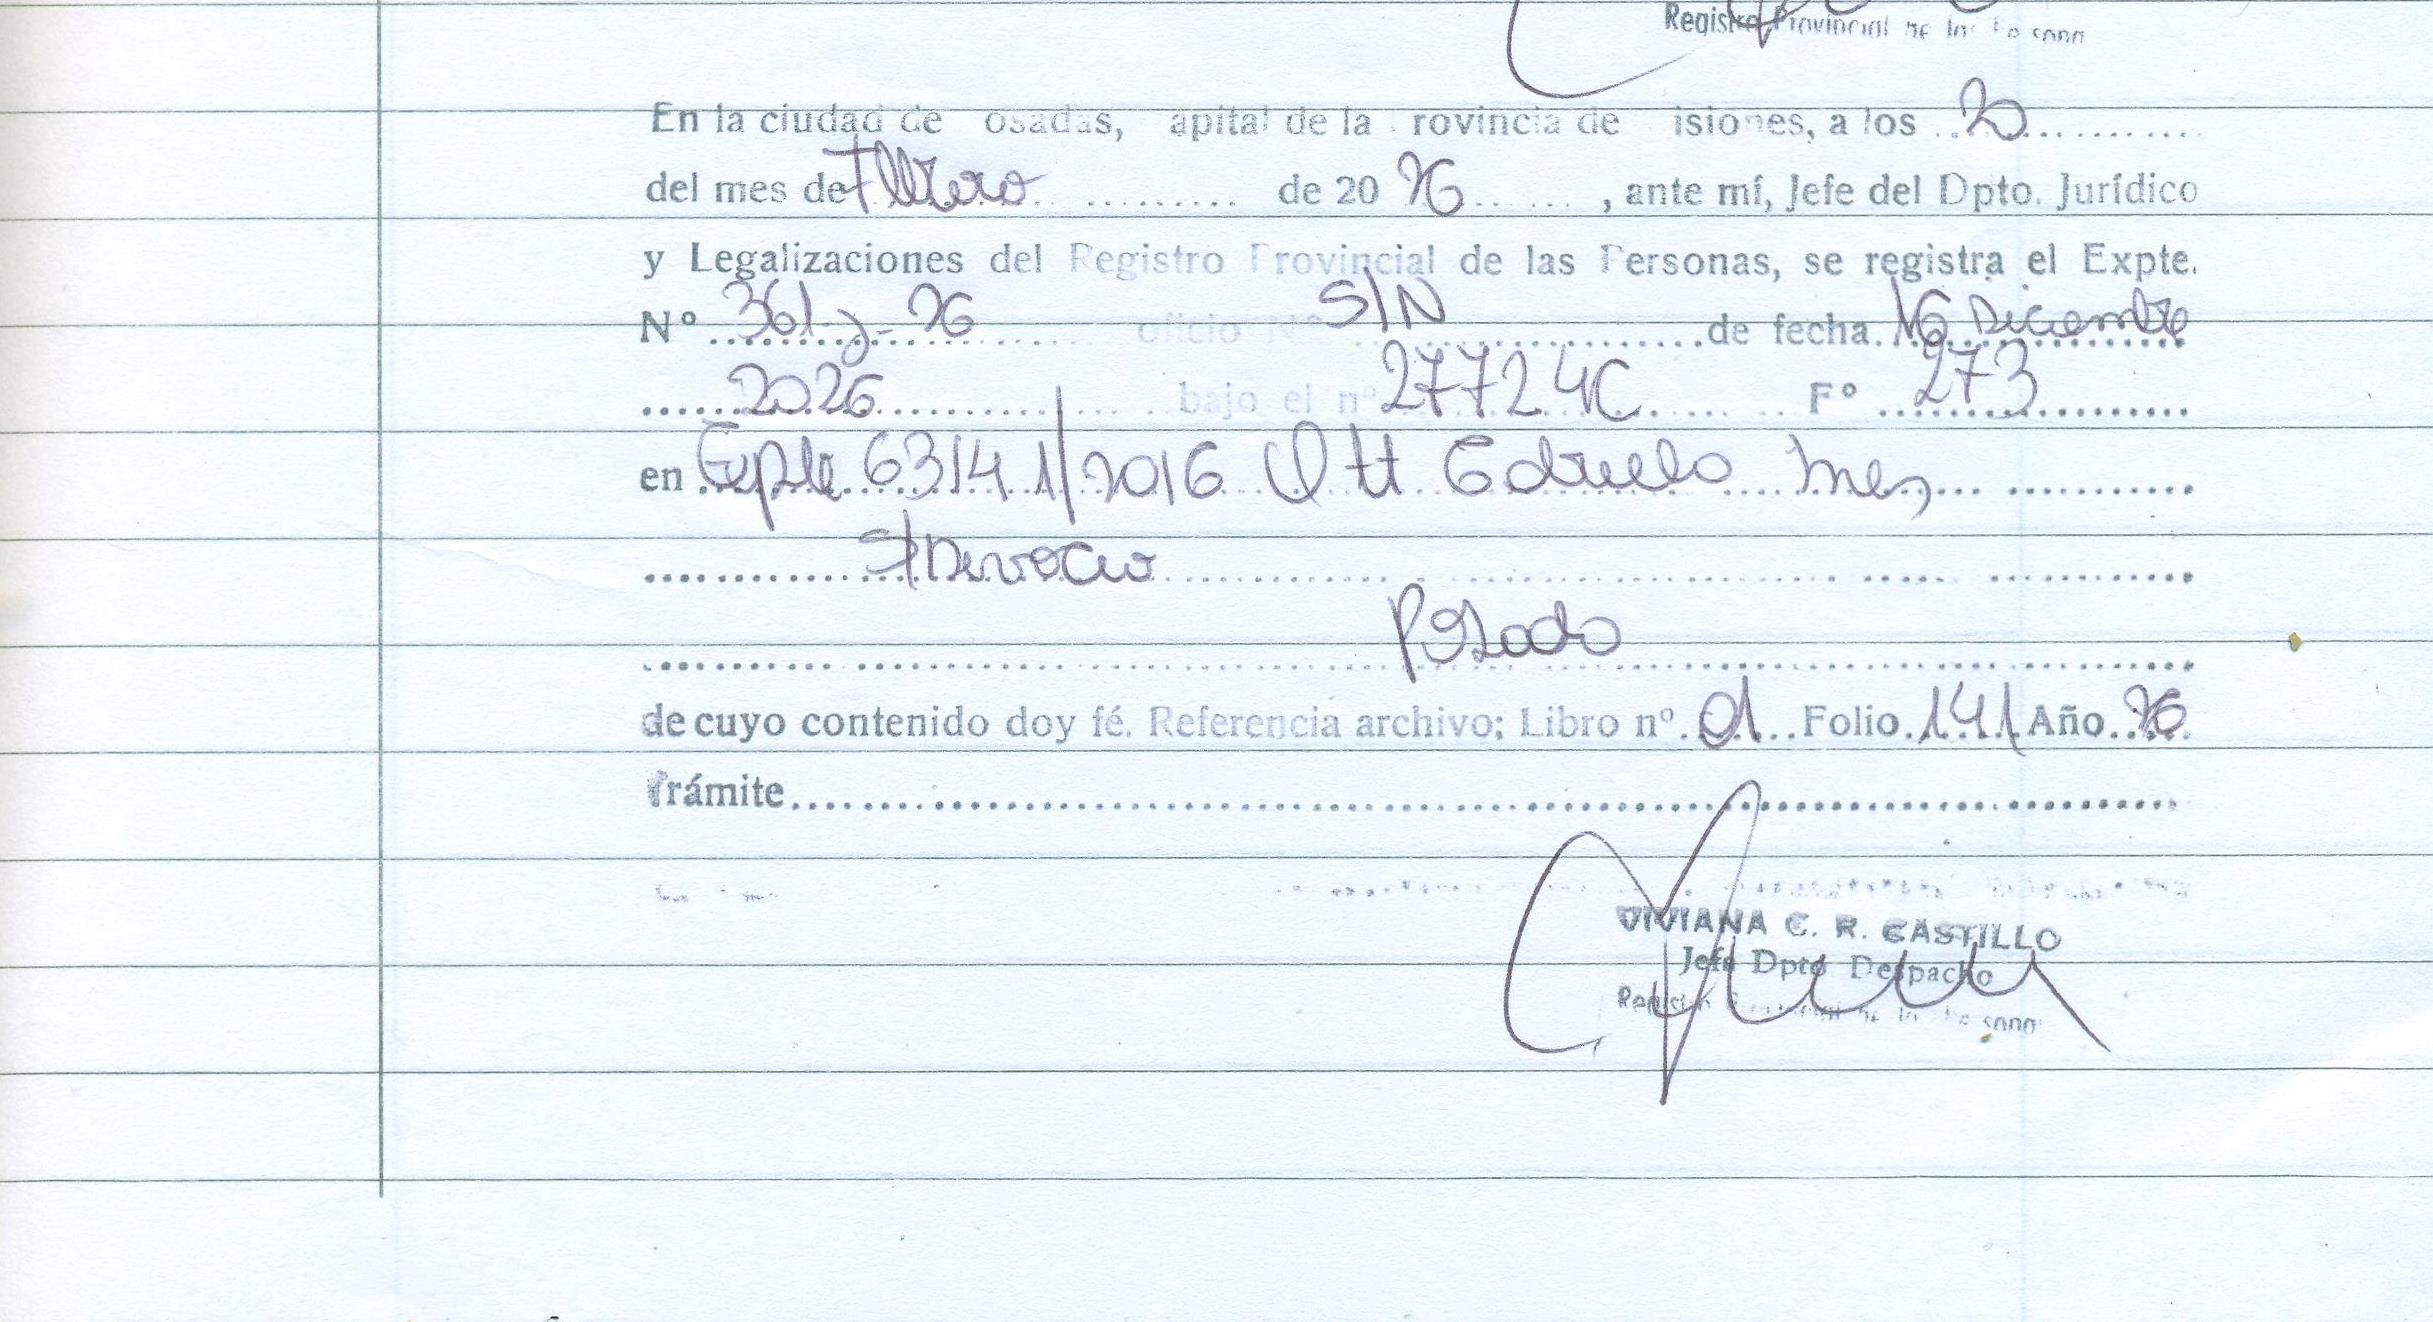 Registro Provincial de las
En la ciudad de osadas, apital de la rovincia de isiones, a los 20
del mes de Febrero de 20 26, ante mí, Jefe del Dpto. Jurídico
y Legalizaciones del Registro Provincial de las Personas, se registra el Expte.
Nº 361-J-26 oficio Nº S/N de fecha 16 Diciembre
2026 bajo el nº 27724C Fº 273
en Expte 63141/2016 Ott Graciela Ines
S/Divorcio
Posadas
de cuyo contenido doy fé. Referencia archivo; Libro nº 01 Folio 141 Año 26
Trámite
VIVIANA C. R. CASTILLO
Jefe Dpto Despacho